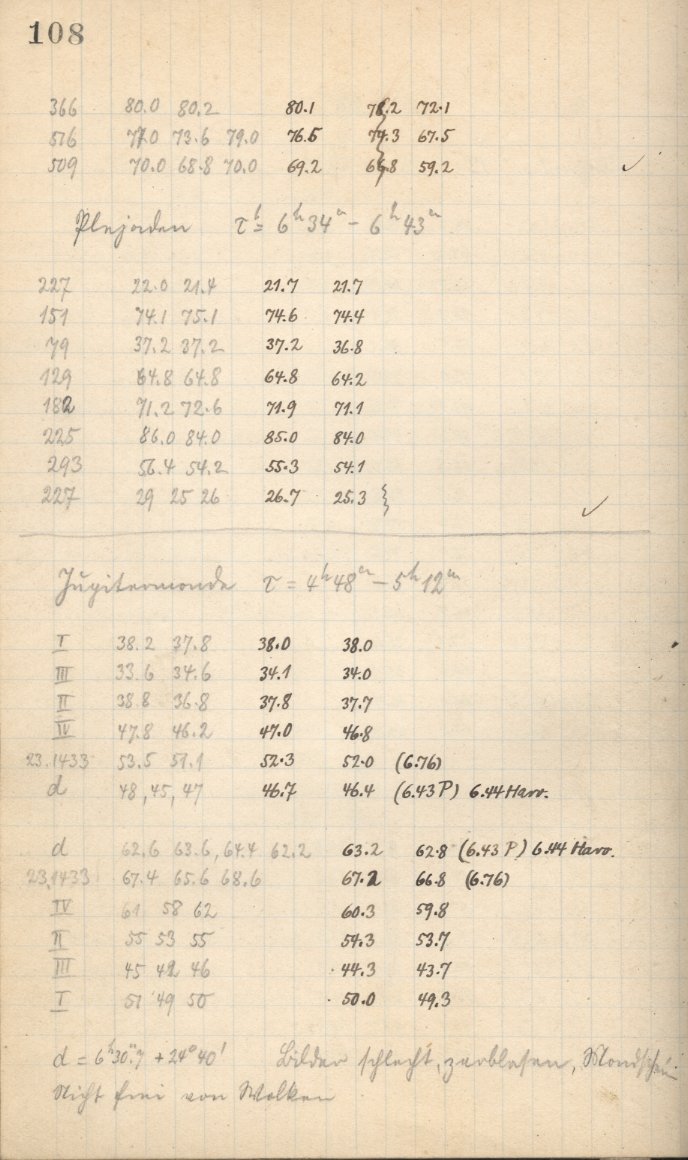 108
366 80.0 80.2 80.1 72.1
516 77.0 73.6 79.0 76.5 74.3 67.5
509 70.0 68.8 70.0 69.2 66.8 59.2 ✓
Plejaden τ = 6h 34m – 6h 43m
227 22.0 21.4 21.7 21.7
151 74.1 75.1 74.6 74.4
79 37.2 37.2 37.2 36.8
129 64.8 64.8 64.8 64.2
182 71.2 72.6 71.9 71.1
225 86.0 84.0 85.0 84.0
293 56.4 54.2 55.3 54.1
227 29 25 26 26.7 25.3 } ✓
Jupitermonde τ = 4h 48m – 5h 12m
I 38.2 37.8 38.0 38.0
III 33.6 34.6 34.1 34.0
II 38.8 36.8 37.8 37.7
IV 47.8 46.2 47.0 46.8
23.1433 53.5 51.1 52.3 52.0 (6.76)
d 48, 45, 47 46.7 46.4 (6.43 P) 6.44 Harv.
d 62.6 63.6, 64.4 62.2 63.2 62.8 (6.43 P) 6.44 Harv.
23.1433 67.4 65.6 68.6 67.2 66.8 (6.76)
IV 61 58 62 60.3 59.8
II 55 53 55 54.3 53.7
III 45 42 46 44.3 43.7
I 51 49 50 50.0 49.3
d = 6h 30m.7 + 24° 40' Bilder schlecht, zerblasen, Mondschein
Nicht frei von Wolken